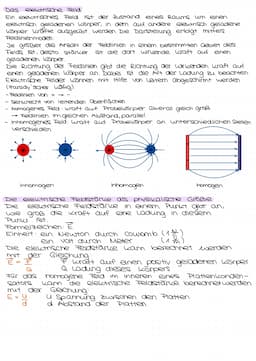 Das elektrische Feld
Ein elektrisches Feld ist der Zustand eines Raums um einen
elektrisch geladenen Körper, in dem auf andere elektrisch geladene
Körper Kräfte ausgeübt werden. Die Darstellung erfolgt mittels
Feldlinienmodell.
Je größer die Anzahl der Feldlinien in einem bestimmten Gebiet des
Felds ist, desto stärker ist die dort wirkende Kraft auf einen
geladenen Körper.
Die Richtung der Feldlinien gibt die Richtung der wirkenden Kraft auf
einen geladenen Körper an. Dabei ist die Art der Ladung zu beachten.
Elektrische Felder können mit Hilfe von Leitern abgeschirmt werden
(Faraday'scher Käfig)
- Feldlinien von + → -
- senkrecht von leitenden Oberflächen
- homogenes Feld: Kraft auf Probekörper überall gleich groß
→ Feldlinien im gleichen Abstand, parallel
- inhomogenes Feld: Kraft auf Probekörper an unterschiedlichen Stellen
verschieden
inhomogen inhomogen homogen
Die elektrische Feldstärke als physikalische Größe
Die elektrische Feldstärke in einem Punkt gibt an,
wie groß die Kraft auf eine Ladung in diesem
Punkt ist.
Formelzeichen: E
Einheit: ein Newton durch Coulomb
ein Volt durch Meter
Die elektrische Feldstärke kann berechnet werden
mit der Gleichung
F Kraft auf einen positiv geladenen Körper
Q Ladung dieses Körpers
Für das homogene Feld im Inneren eines Plattenkonden-
sators kann die elektrische Feldstärke berechnet werden
mit der Gleichung
U Spannung zwischen den Platten
d Abstand der Platten